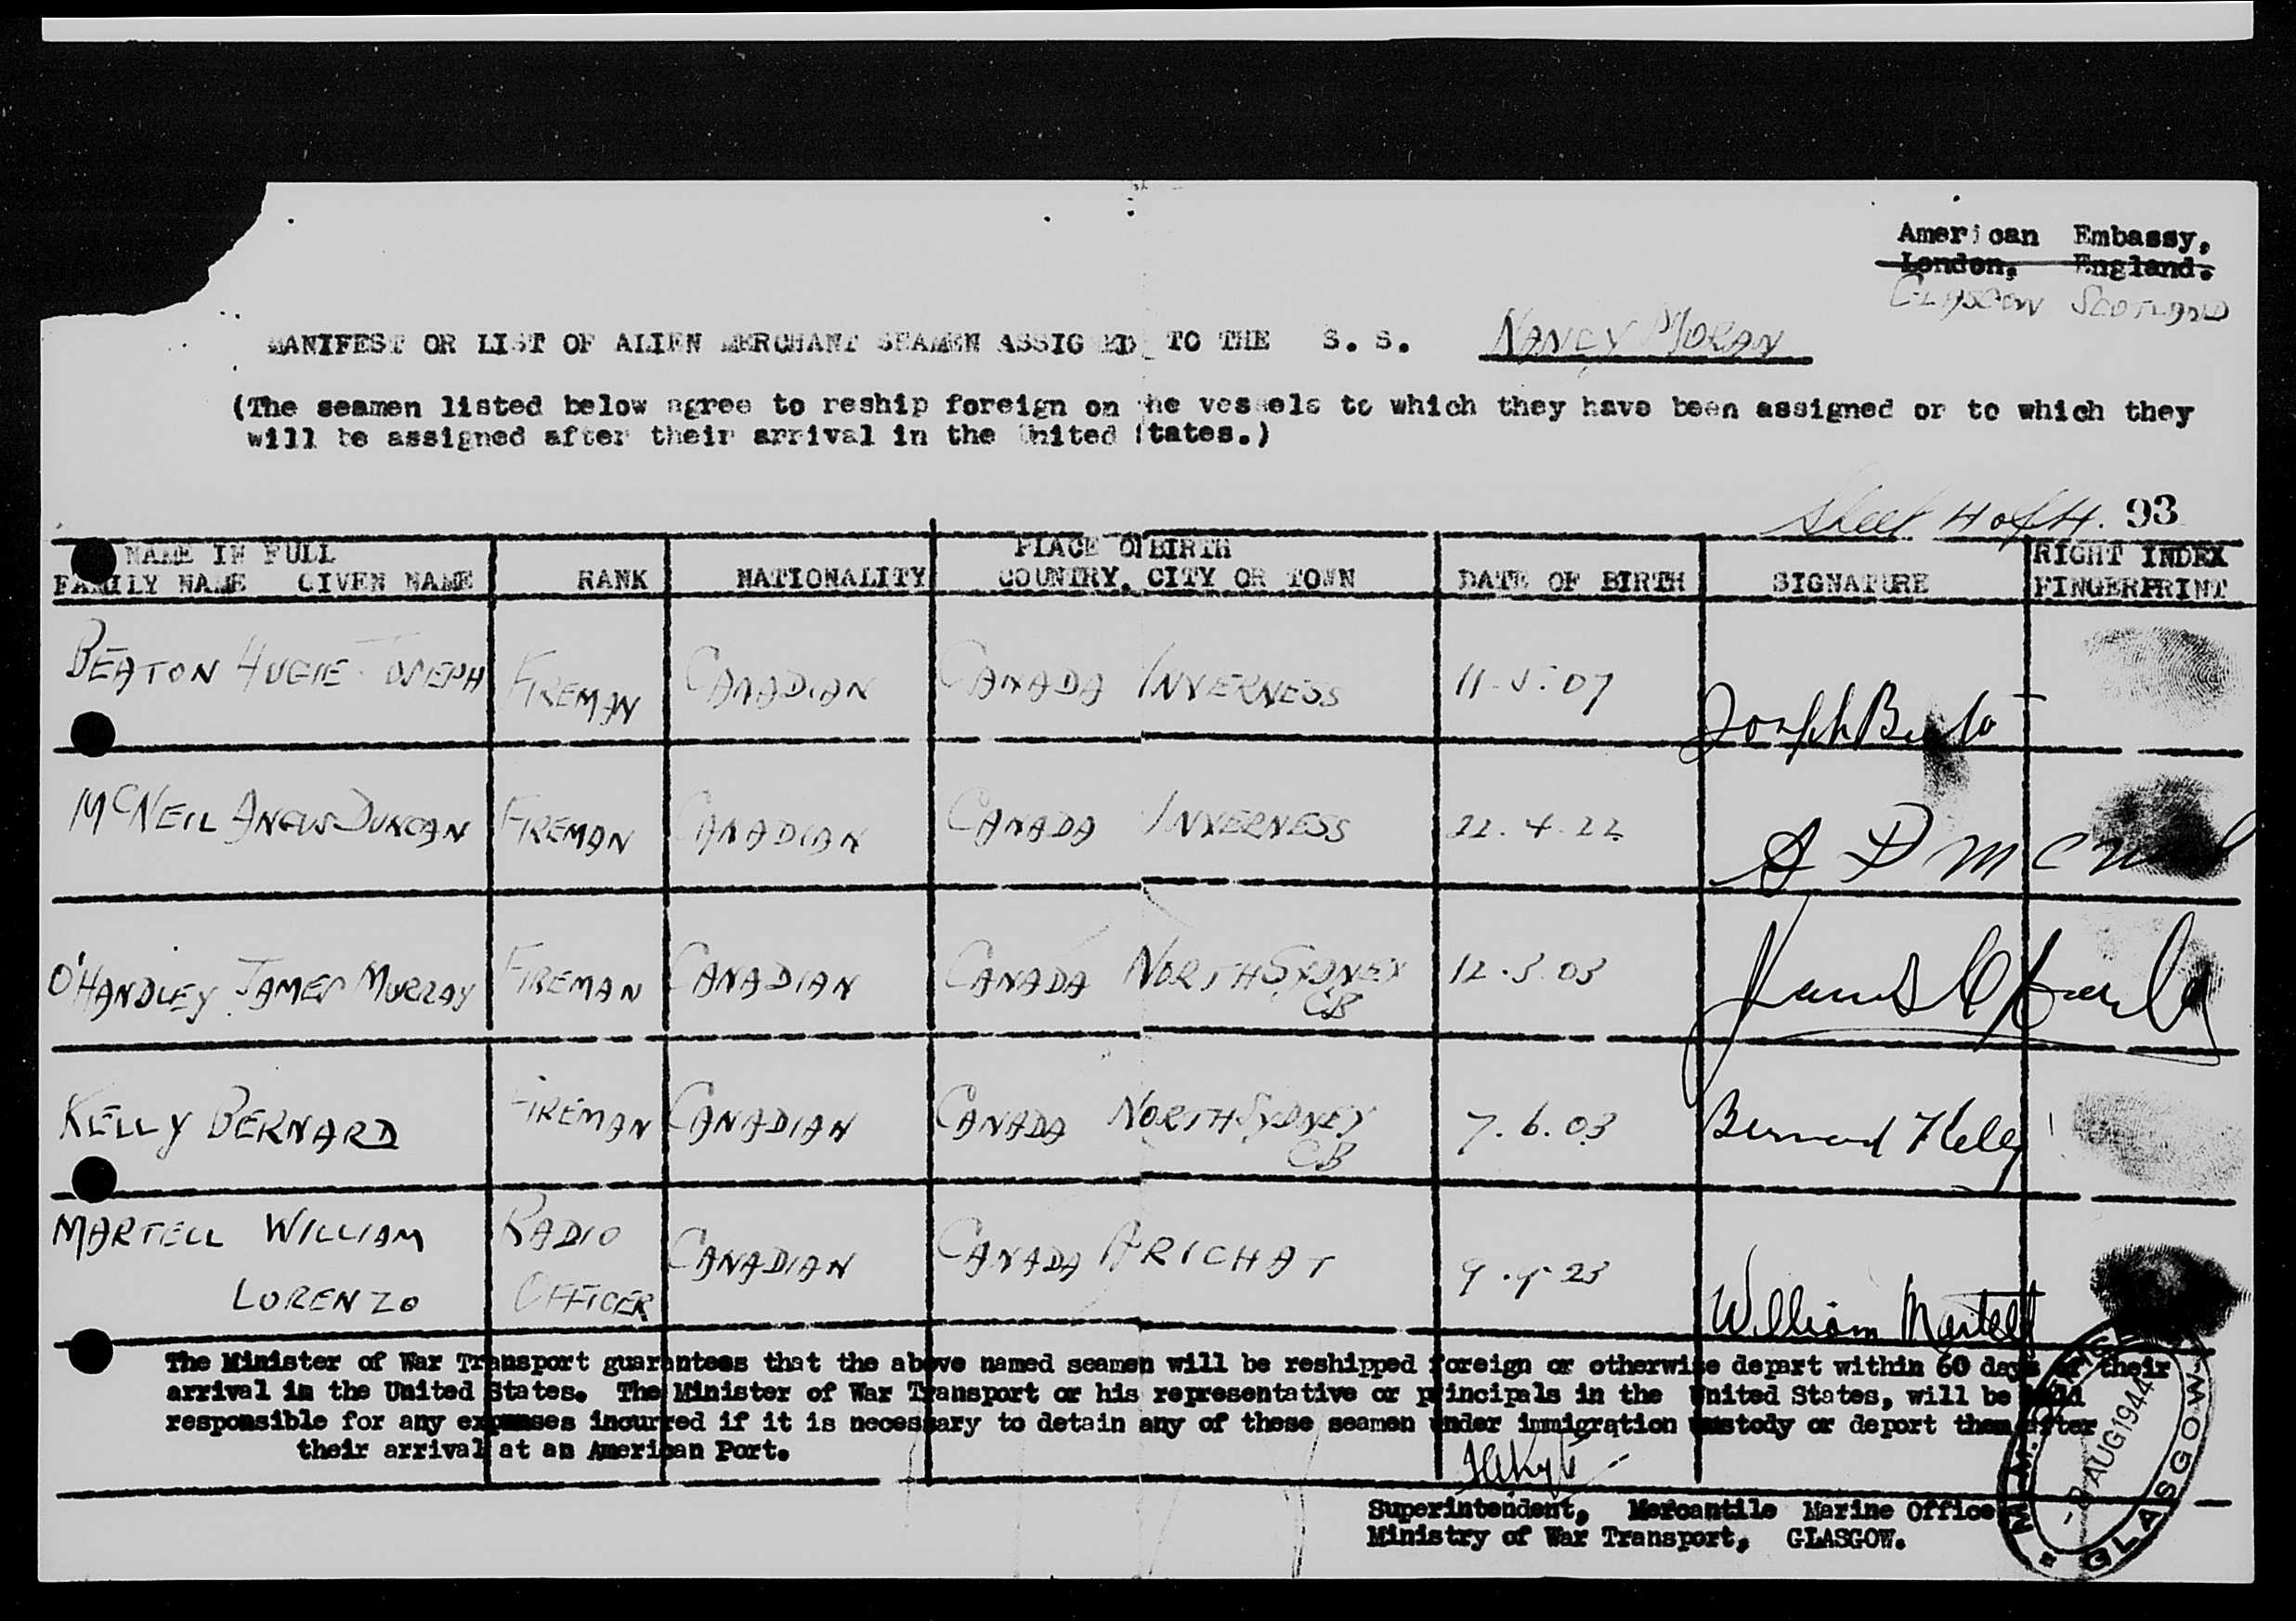 American Embassy,
London, England.
GLASGOW SCOTLAND
MANIFEST OR LIST OF ALIEN MERCHANT SEAMEN ASSIGNED TO THE S. S. NANCY MORAN
(The seamen listed below agree to reship foreign on the vessels to which they have been assigned or to which they
will be assigned after their arrival in the United States.)
Sheet 4 of 4. 93
NAME IN FULL PLACE OF BIRTH RIGHT INDEX
FAMILY NAME GIVEN NAME RANK NATIONALITY COUNTRY, CITY OR TOWN DATE OF BIRTH SIGNATURE FINGERPRINT
BEATON HUGIE JOSEPH FIREMAN CANADIAN CANADA INVERNESS 11.5.07 Joseph Beaton
MCNEIL ANGUS DUNCAN FIREMAN CANADIAN CANADA INVERNESS 22.4.22 A D McNeil
O'HANDLEY JAMES MURRAY FIREMAN CANADIAN CANADA NORTH SYDNEY 12.3.03 James
CB
KELLY BERNARD FIREMAN CANADIAN CANADA NORTH SYDNEY 7.6.03 Bernard Kelly
CB
MARTELL WILLIAM RADIO CANADIAN CANADA ARICHAT 23 William Martell
LORENZO OFFICER
The Minister of War Transport guarantees that the above named seamen will be reshipped foreign or otherwise depart within 60 days of their
arrival in the United States. The Minister of War Transport or his representative or principals in the United States, will be held
responsible for any expenses incurred if it is necessary to detain any of these seamen under immigration custody or deport them after
their arrival at an American Port.
Superintendent, Mercantile Marine Office
Ministry of War Transport, GLASGOW.
M.M.
-8 AUG 1944
GLASGOW